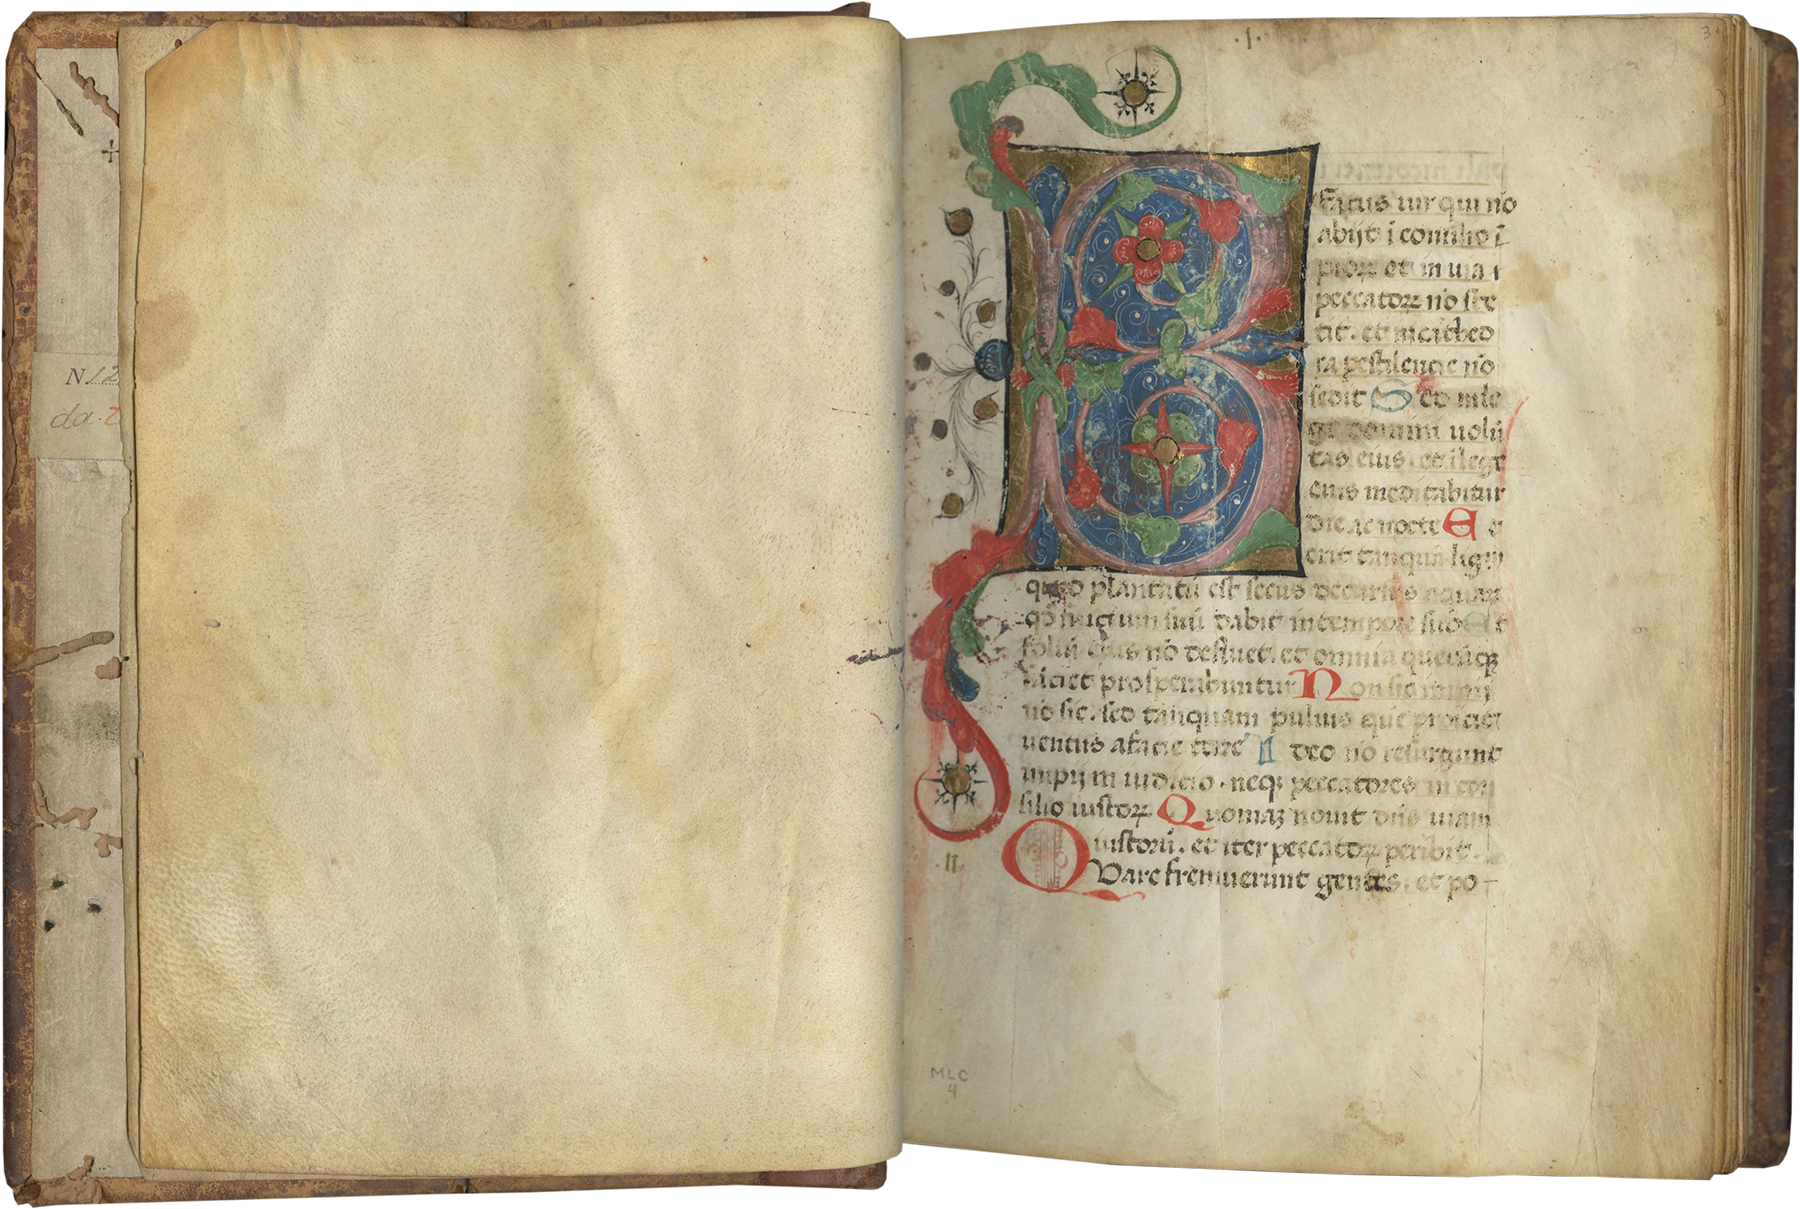 N 12
da. 2
.I.
3
Eatus uir qui nō
abijt ī consilio ī
pioꝝ et in uia
peccatoꝝ nō ste
tit. et in cathed
ra pestilencie nō
sedit Sed in le
ge domini uolū
tas eius. et ī lege
eius meditabitur
die ac nocte Et
erit tanquā lignū
quod plantatū est secus decursus aquaꝝ
qd̄ fructum suū dabit in tempore suo Et
foliū eius nō defluet. et omnia quecūqꝫ
faciet prosperabuntur Non sic impij
nō sic. sed tanquam puluis quē proicit
uentus a facie terre Ideo nō resurgunt
impij in iudicio. neqꝫ peccatores in con
silio iustoꝝ Quoniaꝫ nouit dn̄s uiam
iustorū. et iter peccatoꝝ peribit.
.II.
Quare fremuerunt gentes. et po
MLC
4